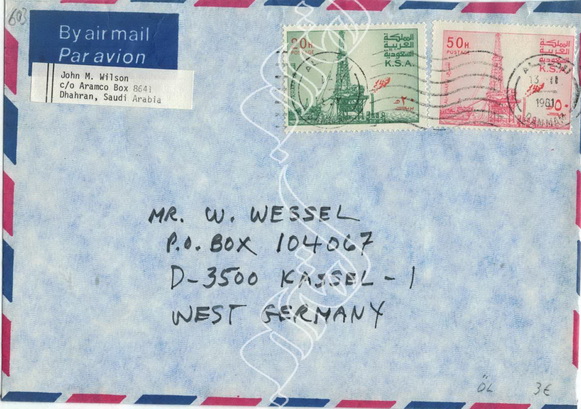 603
By air mail
Par avion
John M. Wilson
c/o Aramco Box 8641
Dhahran, Saudi Arabia
20H
POSTAGE
المملكة
العربية
السعودية
K.S.A.
٢٠
50H
POSTAGE
المملكة
العربية
السعودية
K.S.A.
13 11
1981
MR. W. WESSEL
P.O. BOX 104067
D-3500 KASSEL-1
WEST GERMANY
ÖL 3€